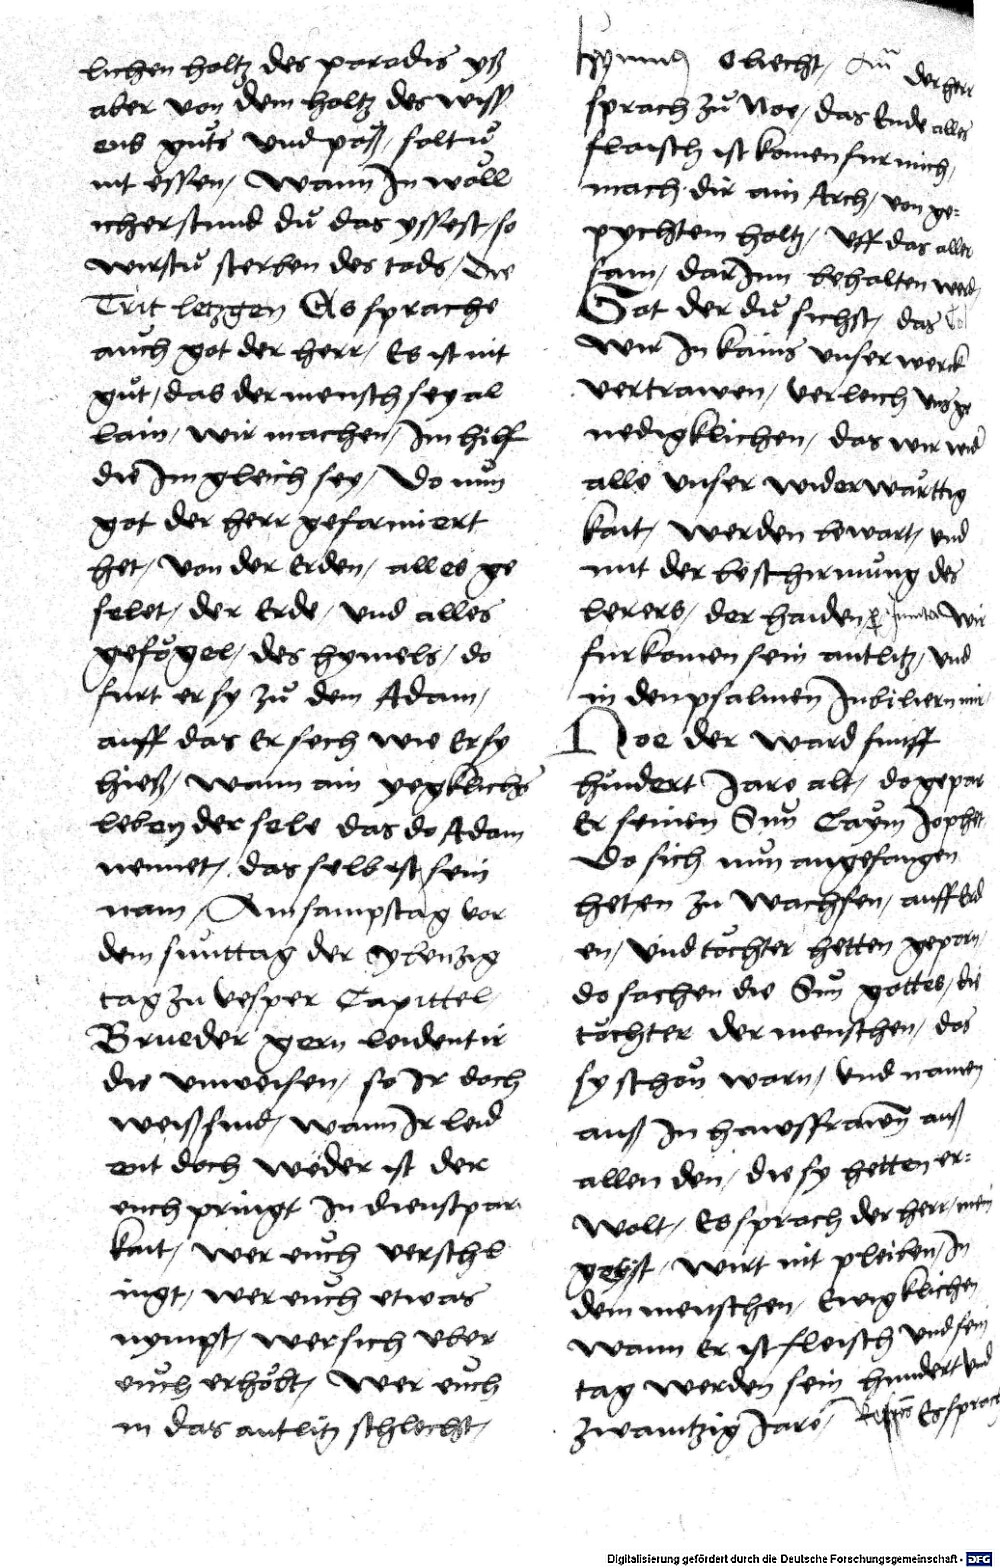 lichen holtz des paradis yß
aber von dem holtz des wiss
ens guts und poß, soltu
nit essen, Wann In wöll
icher stund du das yssest, so
wirstu sterben des tods, Die
Trit letzgen Es sprache
auch got der herr, Es ist nit
gut, das der mensch sey al
lain, wir machen, Im hilf
die Im gleich sey, Do nun
got der herr geformiert
het, von der Erden, alles ge
selet, der Erde, und alles
gefögel, des hymels, do
furt er sy zu dem Adam,
auff das Er sech wie Er sy
hieß, wann ain yegklichs
leben der sele das do Adam
nennet, das selb ist sein
nam, Am sampstag vor
dem suntag der
tag zu vesper Capittel,
Brueder gern leident ir
die unweisen, so Ir doch
weiß sind, wann Ir leid
ent doch weder ist der
euch pringt In dienstpar
kait, wer euch verschl
ingt, wer euch etwas
nympt, wer sich uber
euch erhöbt, Wer euch
in das antlitz schlecht,
der herr
sprach zu Noe, das Ende alles
flaisch ist komen fur mich,
mach dir ain Arch, von ge=
pychtem holtz, Uff das aller
sam, dar Inn behalten werd,
Got der du sichst, das
wir In kains unser werck
vertrawen, verleich uns ge
nedigklichen, das wir wid
alle unser widerwärttig
kait, werden bewart, und
mit der beschirmung des
lerers, der haiden, wir
furkomen sein antlitz, und
in den psalmen Jubiliern mir,
Noe der ward funff
hundert Jare alt, do gepar
Er seinen Sun Caym Japhet,
Do sich nun angefangen
heten zu wachsen, auff Erd
en, und töchter hetten geporn,
do sachen die Sun gottes, die
töchter der menschen, das
sy schön warn, und namen
auß In hawsfrawen auß
allen den, die sy hetten er=
wolt, Es sprach der herr, mein
geist, wirt nit pleiben, In
dem menschen, Ewigklichen,
wann Er ist fleisch und sein
tag werden sein hundert und
zwaintzig Jare, Es sprach
Digitalisierung gefördert durch die Deutsche Forschungsgemeinschaft - DFG